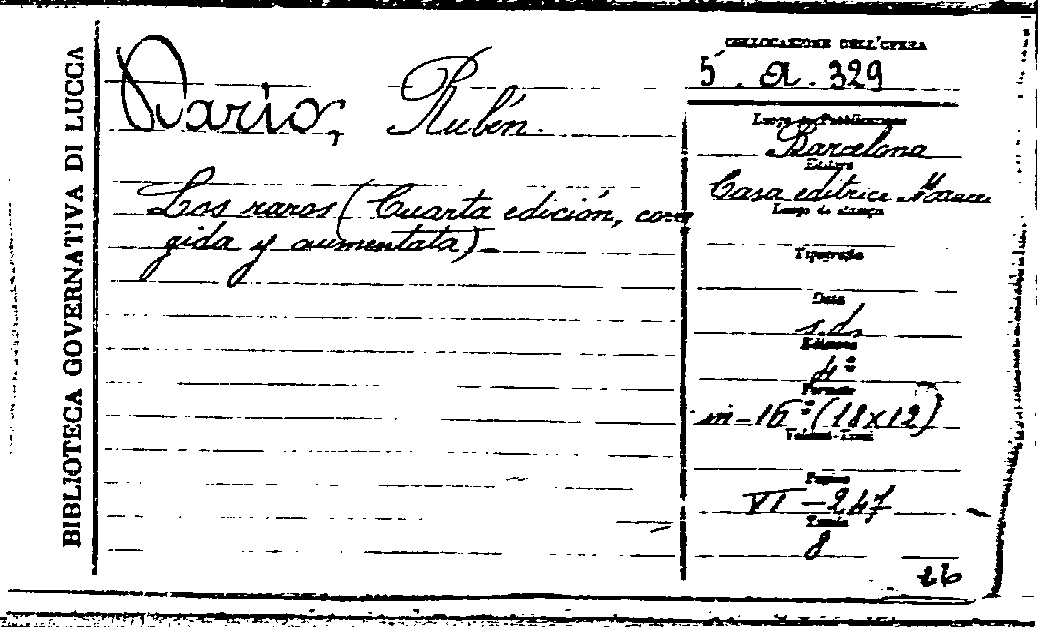 BIBLIOTECA GOVERNATIVA DI LUCCA
Dario, Rubén.
Los raros (Cuarta edición, corre
gida y aumentata)-
COLLOCAZIONE DELL'OPERA
5. a. 329
Luogo di Pubblicazione
Barcelona
Editore
Casa editrice Maucci
Luogo di stampa
Tipografia
Data
s.d.
Edizione
4ª
Formato
in-16º (18x12)
Volumi-Tomi
Pagine
VI-247
Tavole
8